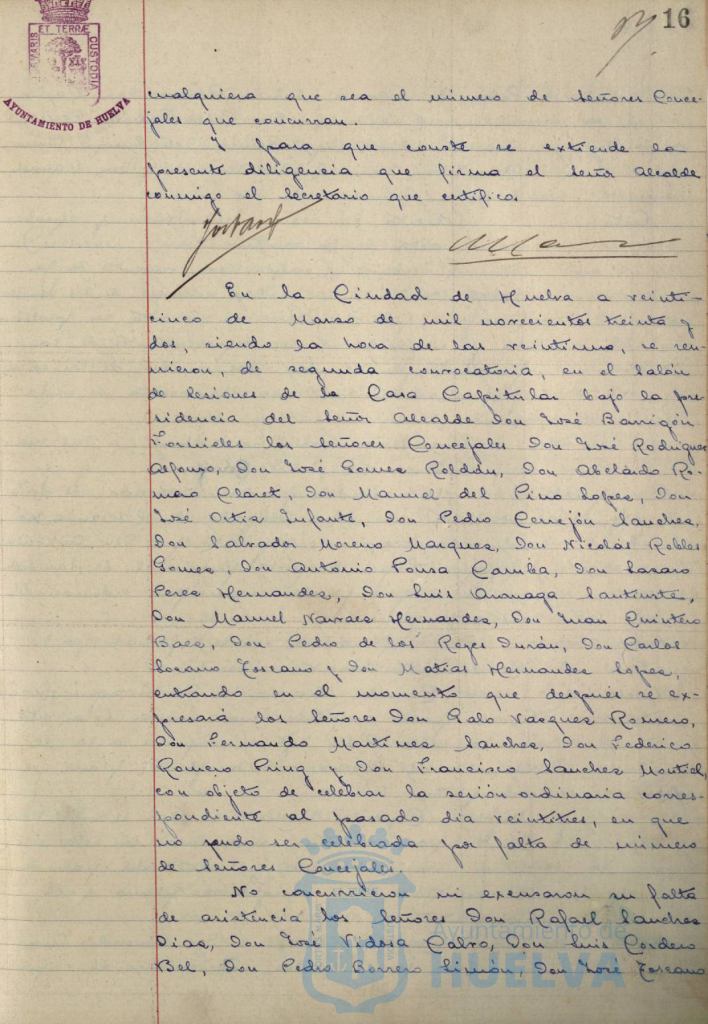 16
PORTUS MARIS ET TERRÆ CUSTODIA
AYUNTAMIENTO DE HUELVA
cualquiera que sea el número de Señores Conce-
jales que concurran.
Y para que conste se extiende la
presente diligencia que firma el Señor Alcalde
conmigo el Secretario que certifico.
En la Ciudad de Huelva a veinti-
cinco de Marzo de mil novecientos treinta y
dos, siendo la hora de las veintiuna, se reu-
nieron, de segunda convocatoria, en el Salón
de Sesiones de la Casa Capitular bajo la pre-
sidencia del Señor Alcalde Don José Barrigón
Fornieles los Señores Concejales Don José Rodríguez
Alfonso, Don José Gomez Roldán, Don Abelardo Ro-
mero Claret, Don Manuel del Pino Lopez, Don
José Ortiz Infante, Don Pedro Cerrejón Sanchez,
Don Salvador Moreno Marquez, Don Nicolás Robles
Gomez, Don Antonio Pousa Camba, Don Lazaro
Perez Hernandez, Don Luis
Don Manuel Narvaez Hernandez, Don Juan Quintero
Baez, Don Pedro de los Reyes Durán, Don Carlos
Lozano Toscano y Don Matías Hernandez Lopez,
entrando en el momento que después se ex-
presará los Señores Don Galo Vazquez Romero,
Don Fernando Martinez Sanchez, Don Federico
Romero Pring y Don Francisco Sanchez Montiel,
con objeto de celebrar la sesión ordinaria corres-
pondiente al pasado dia veintitres, en que
no pudo ser celebrada por falta de número
de Señores Concejales.
No concurrieron ni excusaron su falta
de asistencia los Señores Don Rafael Sanchez
Diaz, Don José Vidosa Calvo, Don Luis Cordero
Bel, Don Pedro Borrero Limón, Don José Toscano
Ayuntamiento de
HUELVA